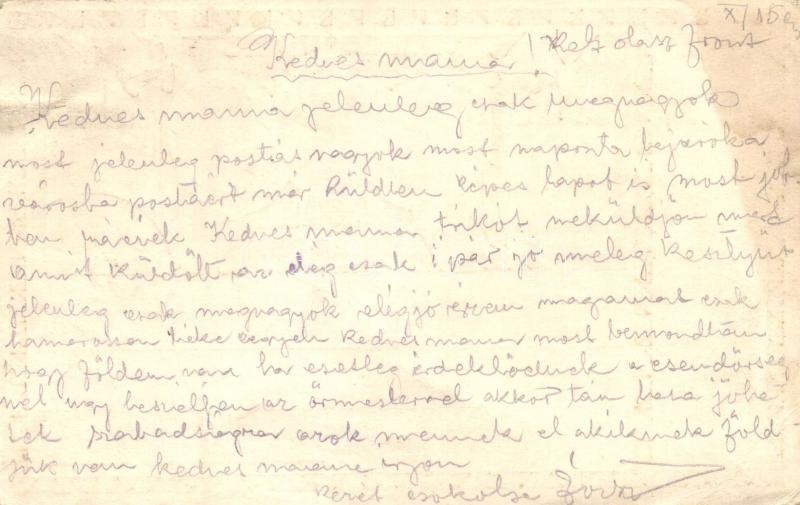 X/15
Kedves mama! Kelt olasz front
Kedves mama jelenleg csak megvagyok
most jelenleg postás vagyok most naponta bejárok a
városba postáért már küldtem képes lapot is most job
ban Kedves mama trikót neküldjön mert
amit küldött az elég csak 1 pár jó meleg kesztyűt
jelenleg csak megvagyok elég jó érzem magamat csak
hamarossan béke legyen kedves mama most bemondtam
hogy földem van ha esetleg érdeklődnek a csendőrség
nél úgy beszéljen az őrmesterrel akkor tán haza jöhe
tek szabadságra azok mennek el akiknek föld
jük van kedves mama irjon
kezét csókolja